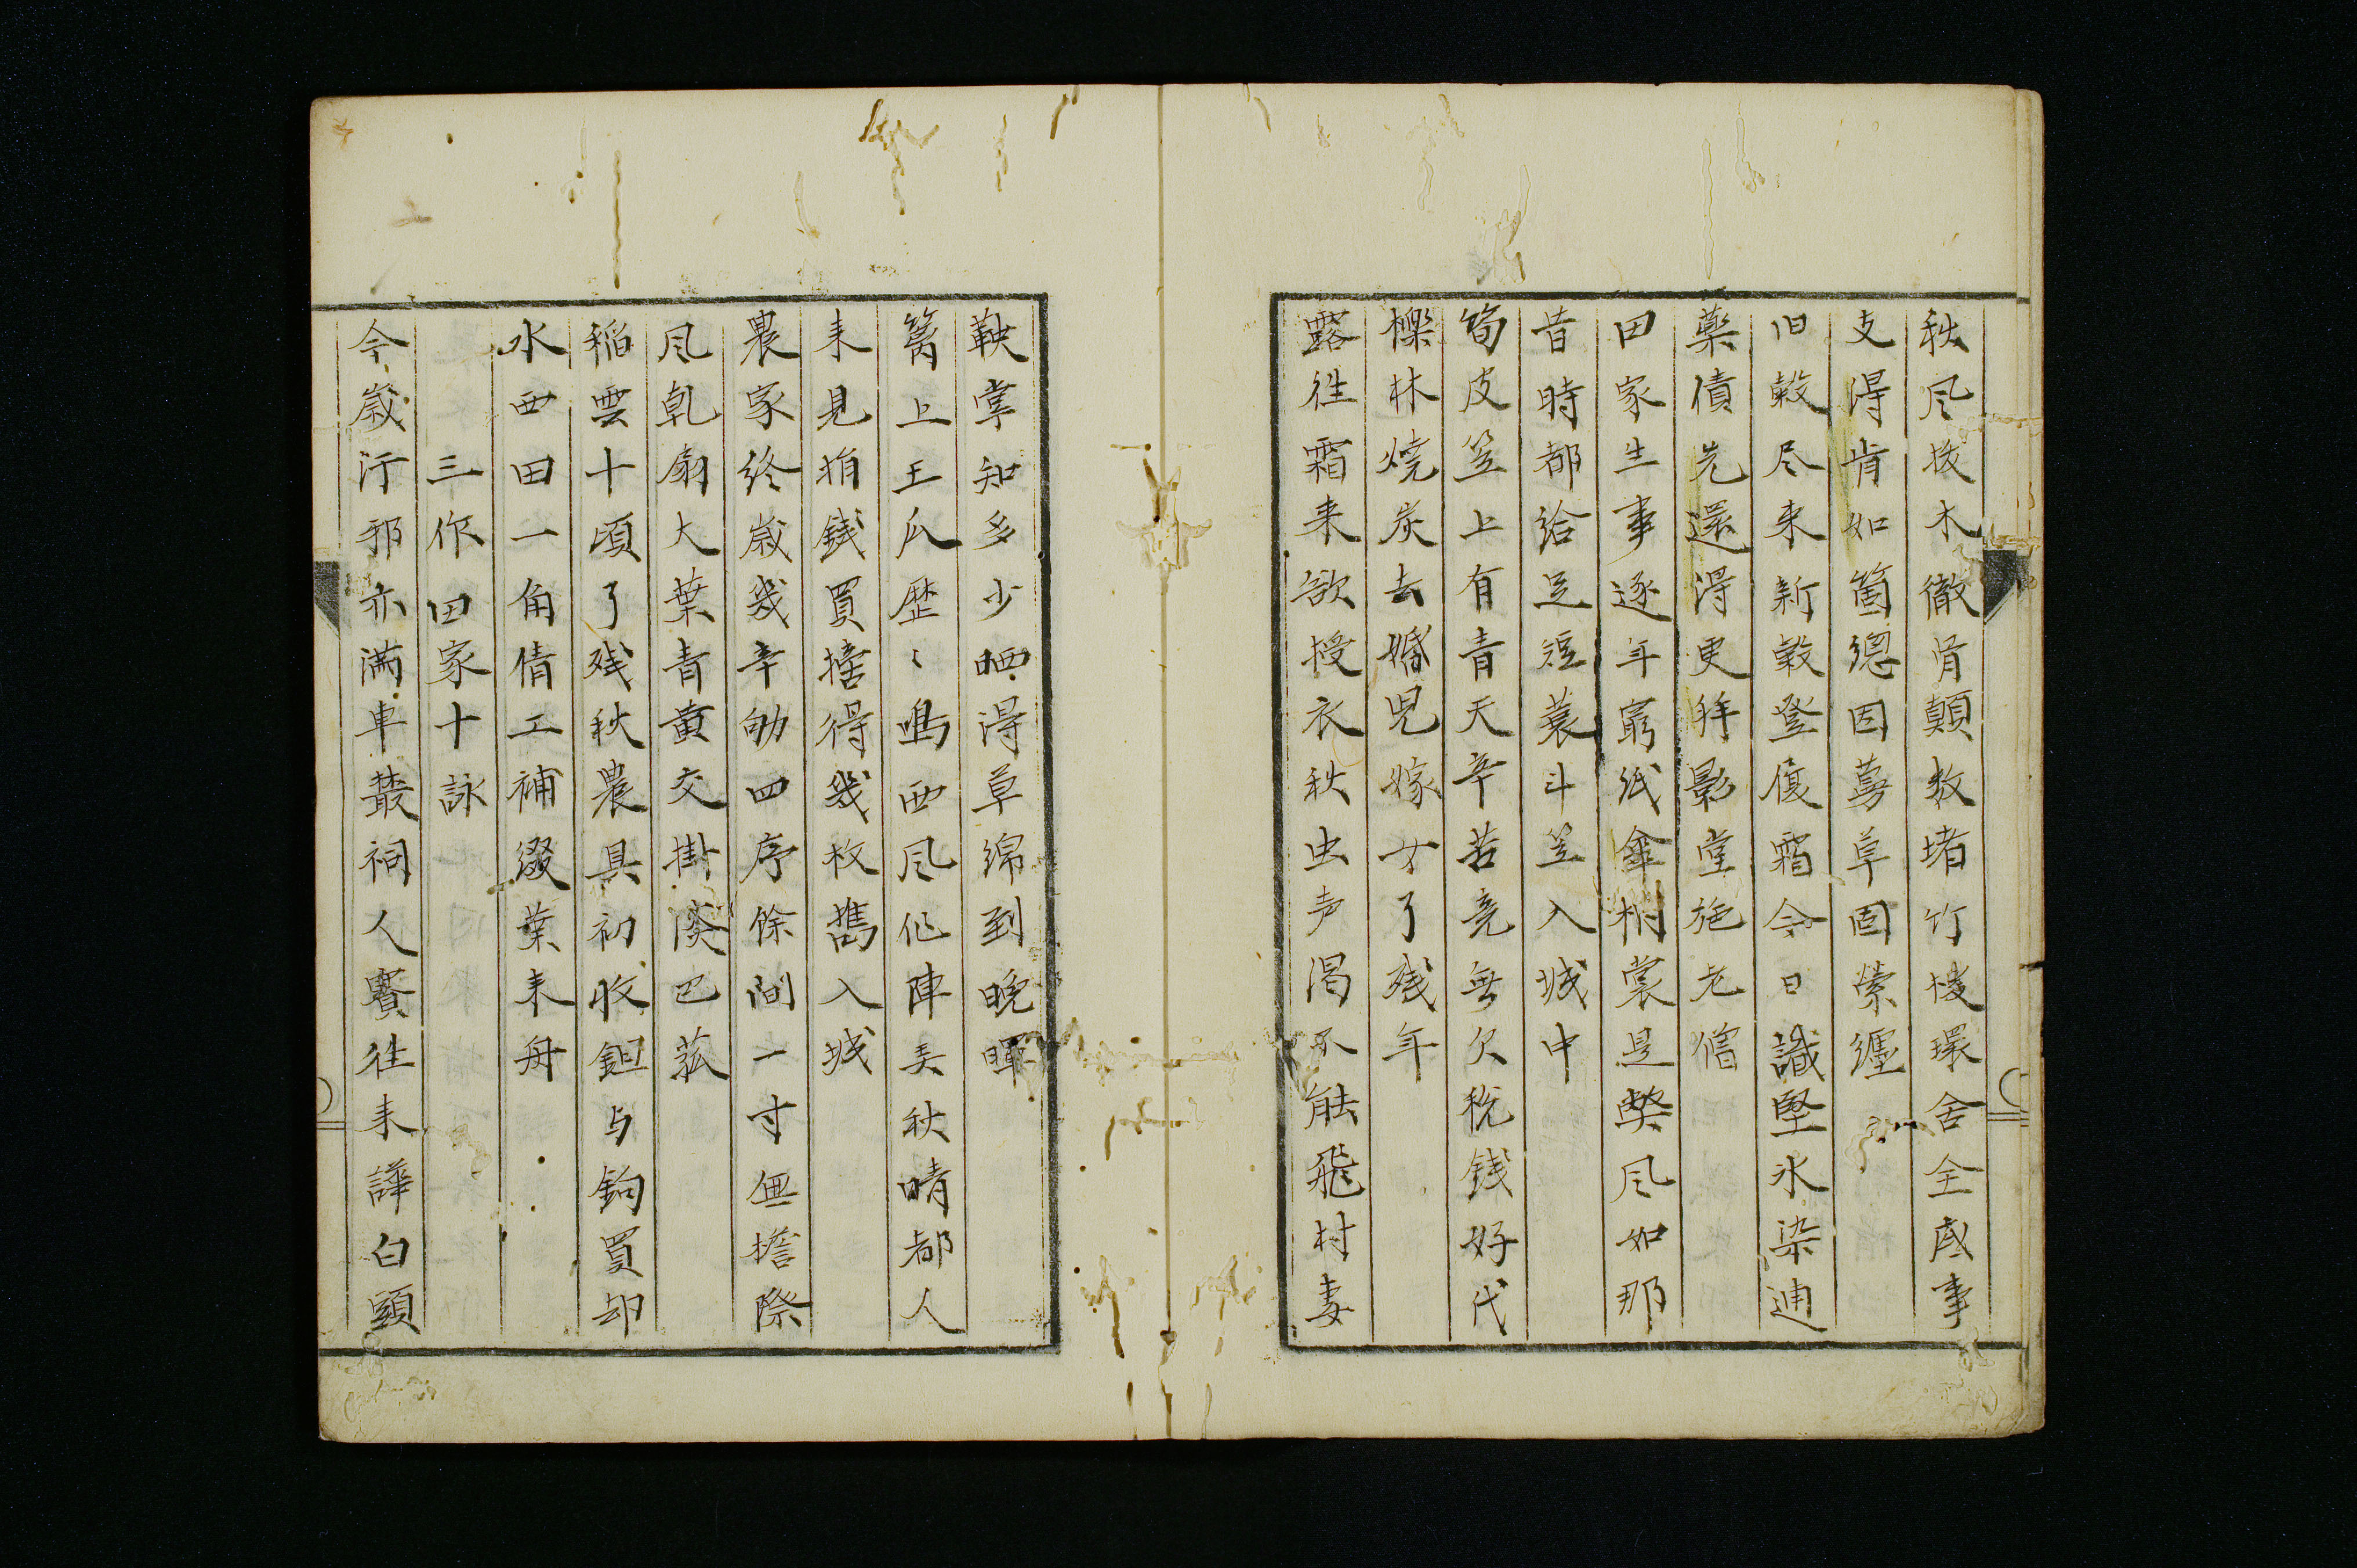 秋風拔木徹骨顛数堵竹棧環舍全底事
支得肯如箇緦因蔓草固縈纏
旧穀尽来新穀登履霜今日識堅氷染逋
薬債先還得更拜影堂施老僧
田家生事逐年窮紙傘桐裳是弊風如那
昔時都給足短蓑斗笠入城中
筍皮笠上有青天辛苦竟無欠税銭好伐
櫟林焼炭去婚児嫁女了残年
露往霜来欲授衣秋虫声渇不能飛村妻
鞅掌知多少晒得草綿到晩暉
篱上王瓜歴〻鳴西風作陣美秋晴都人
来見捐銭買擔得幾枚檇入城
農家終歳幾辛劬四序餘間一寸無擔際
風乾扇大葉青黄交掛淡巴菰
稲雲十頃了残秋農具初收鉏与鈎買却
水西田一角倩工補綴葉来舟
三作田家十詠
今歳汙邪亦満車叢祠人賽往来譁白頭